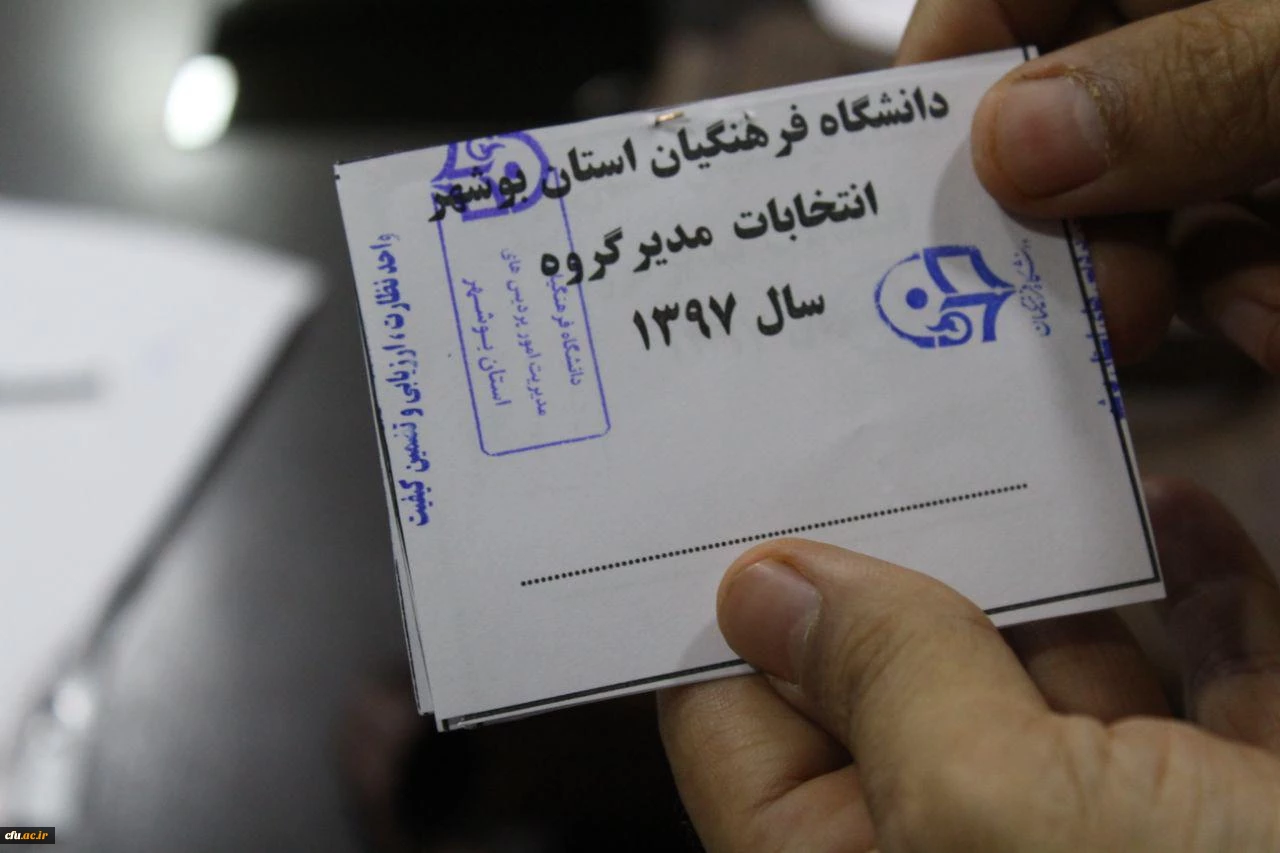 دانشگاه فرهنگیان استان بوشهر
انتخابات مدیر گروه
سال ۱۳۹۷
دانشگاه فرهنگیان
دانشگاه فرهنگیان
مدیریت امور پردیس های
استان بوشهر
واحد نظارت ، ارزیابی و تضمین کیفیت
cfu.ac.ir